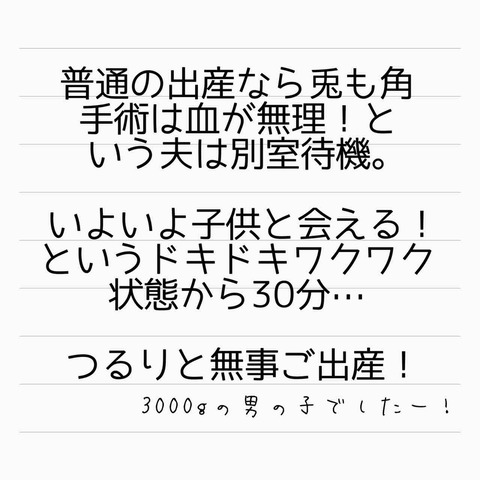 普通の出産なら兎も角
手術は血が無理！と
いう夫は別室待機。
いよいよ子供と会える！
というドキドキワクワク
状態から30分…
つるりと無事ご出産！
3000gの男の子でしたー！